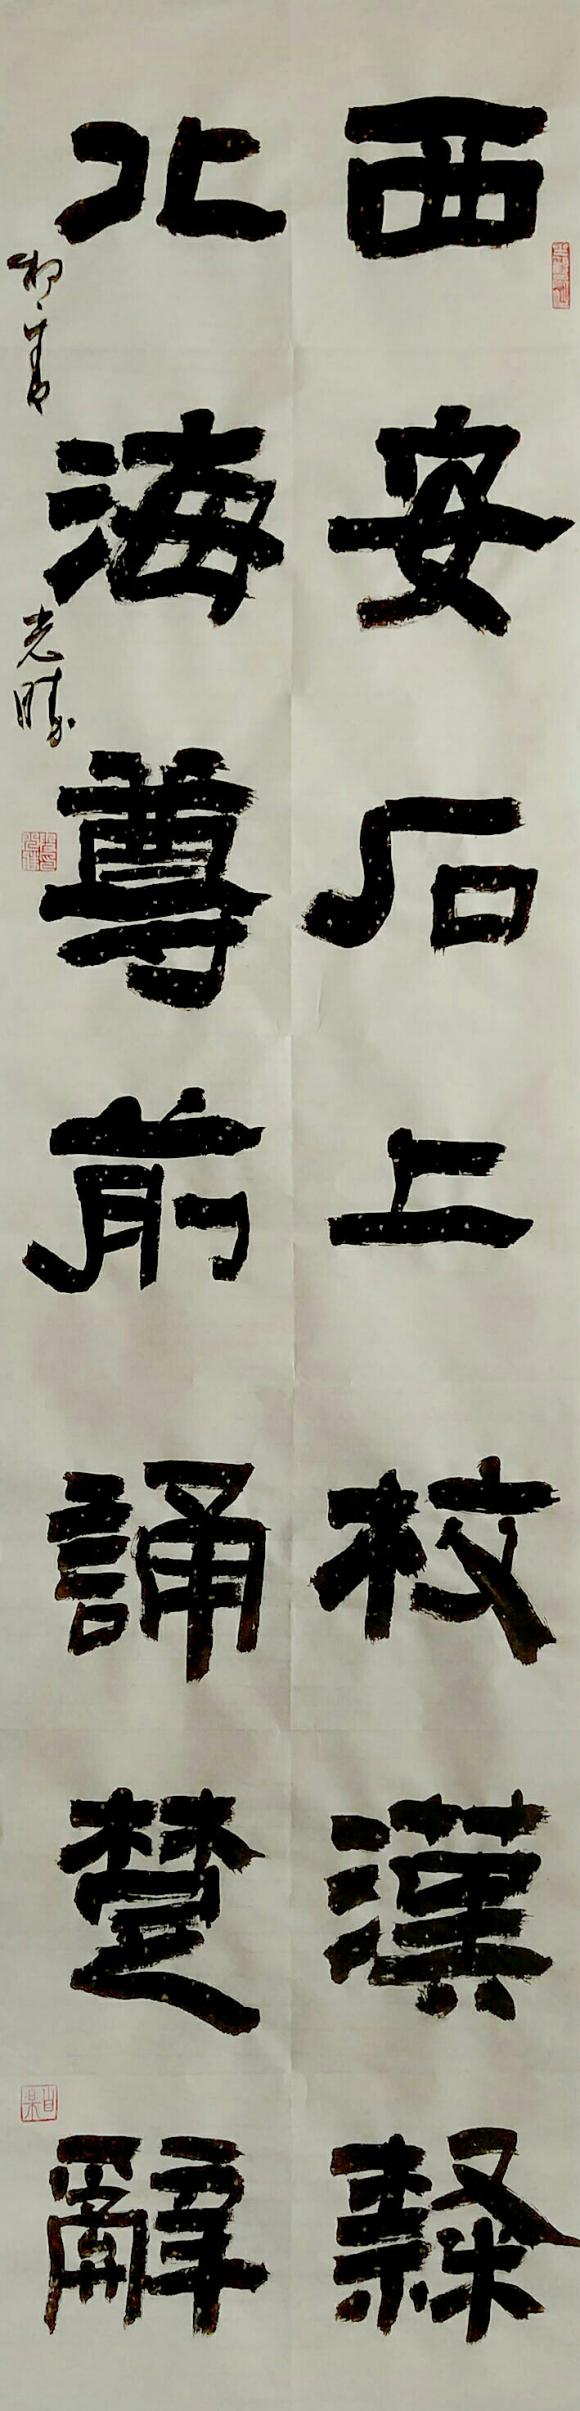 西安石上校漢隸
北海尊前誦楚辭
光晴